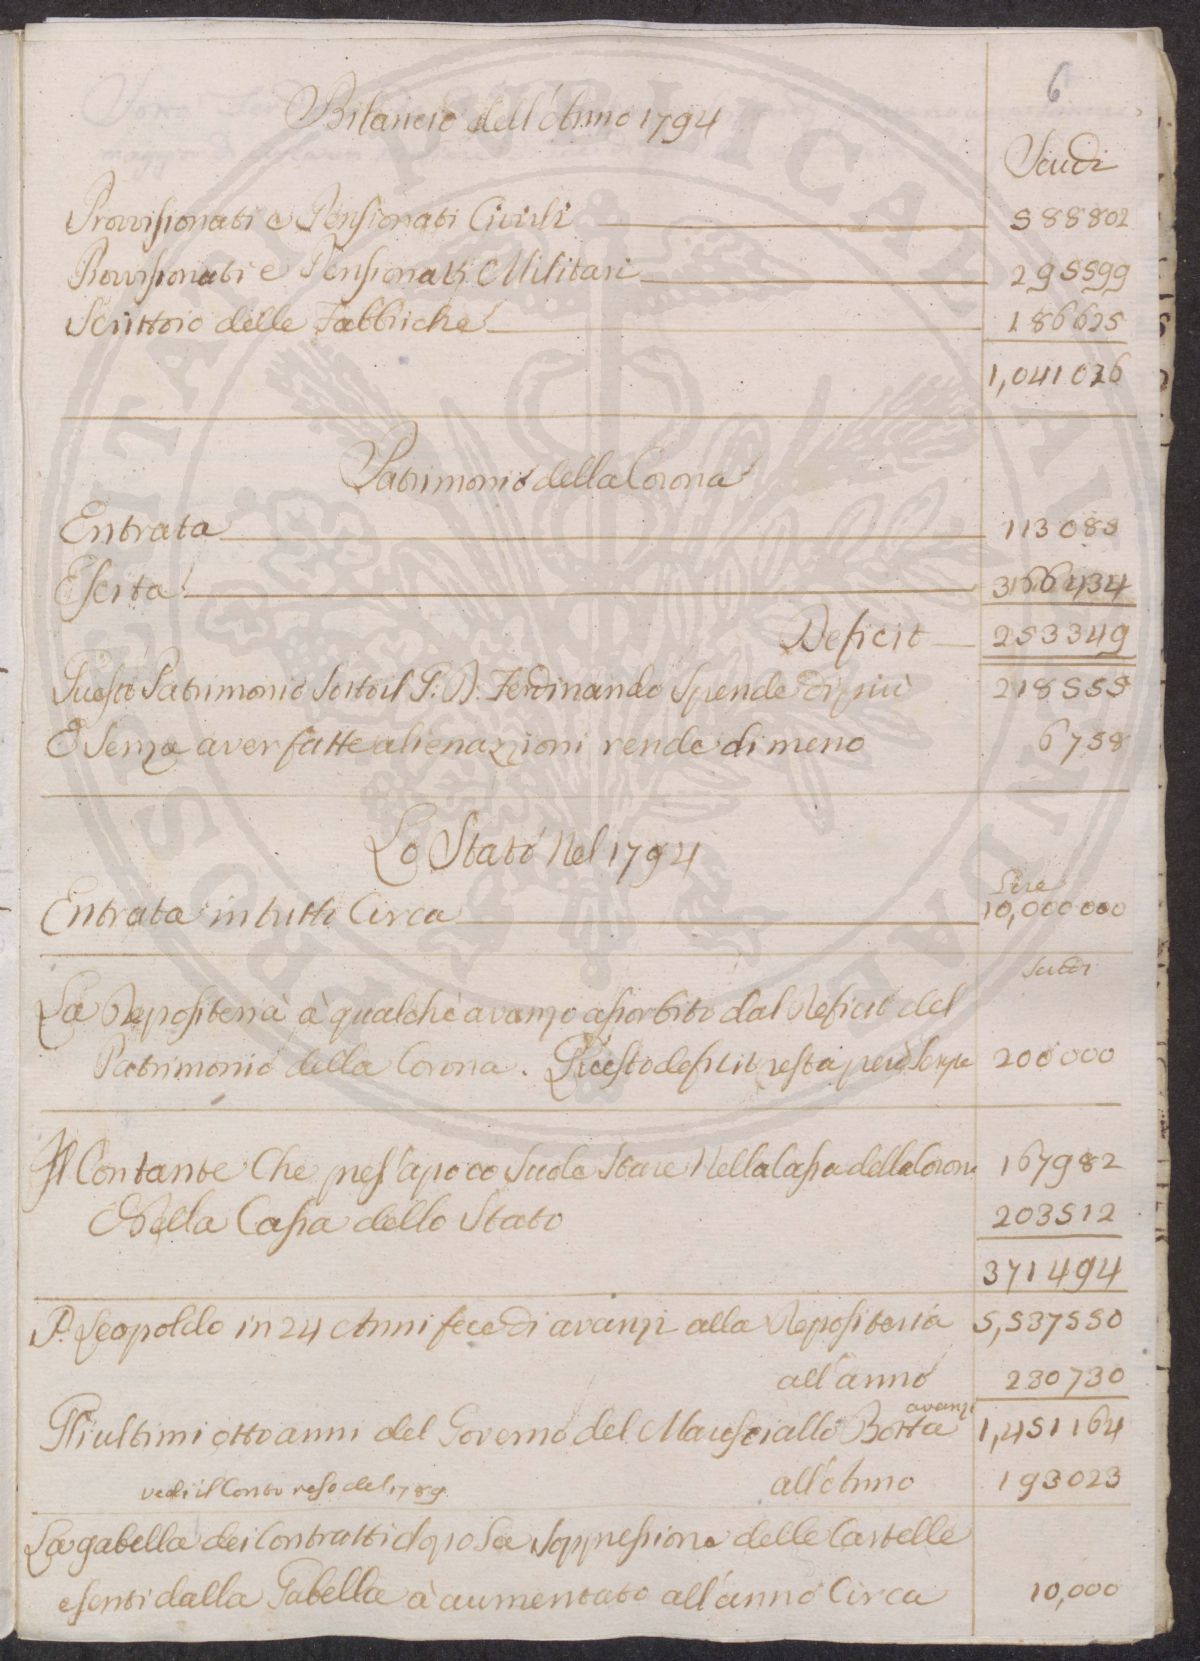 6
Bilancio dell'Anno 1794
Scudi
Provvisionati e Pensionati Civili 588802
Provvisionati e Pensionati Militari 295599
Scrittoio delle Fabbriche 186625
1,041026
Patrimonio della Corona
Entrata 113085
Escita 366434
Deficit 253349
Questo Patrimonio sotto il G: D: Ferdinando spende di piu 218555
E senza aver fatte alienazioni rende di meno 6758
Lo Stato Nel 1794
Lire
Entrata in tutto Circa 10,000000
Scudi
La Depositeria à qualche avanzo asorbito dal Deficit del
Patrimonio della Corona. Questo deficit resta però sempre 200000
Il Contante Che press'apoco suole stare Nella Cassa della Corona 167982
E Della Cassa dello Stato 203512
371494
P. Leopoldo in 24 Anni fece di avanzi alla Depositeria 5,537550
all'anno 230730
Gli ultimi otto anni del Governo del Maresciallo Botta avanzi 1,451164
vedi il Conto reso del 1789. all'Anno 193023
La gabella dei Contratti dopo la soppressione delle Cartelle
esenti dalla Gabella à aumentato all'anno Circa 10,000
PUBLICA